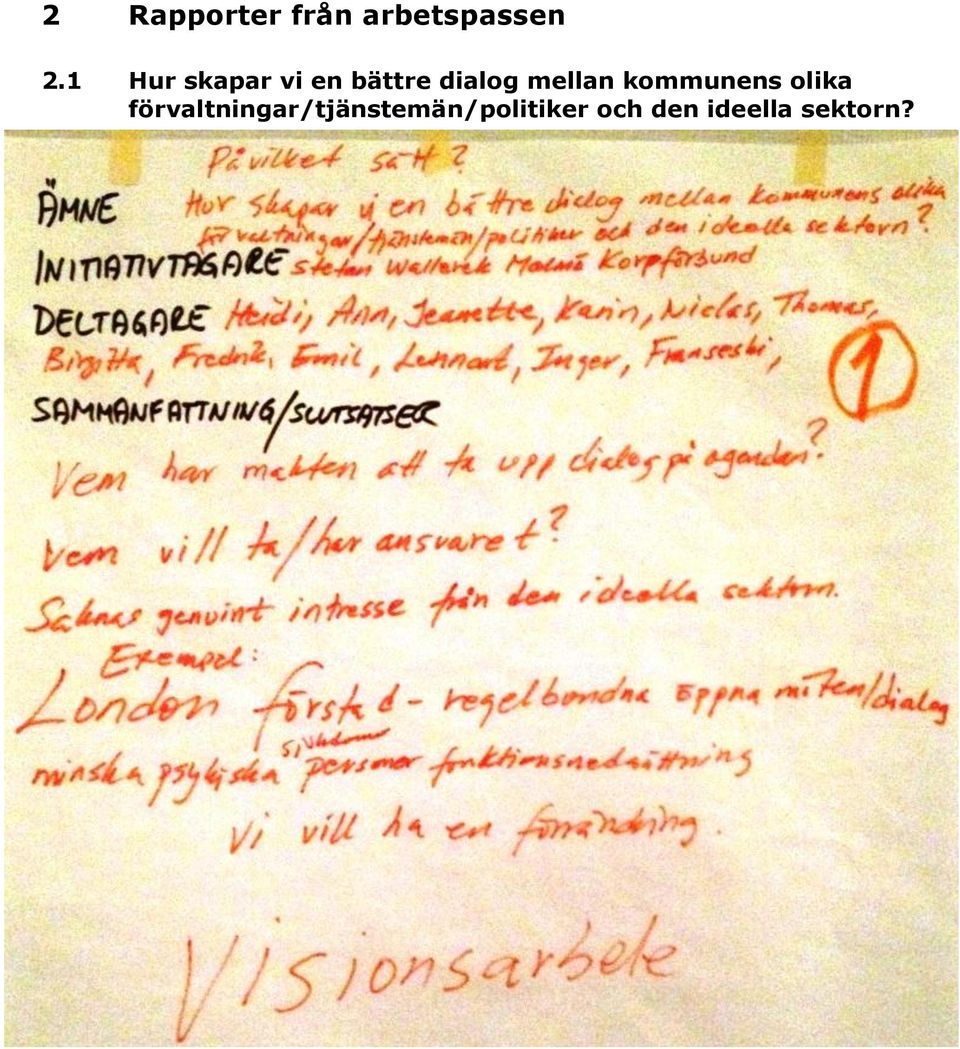 2 Rapporter från arbetspassen
2.1 Hur skapar vi en bättre dialog mellan kommunens olika
förvaltningar/tjänstemän/politiker och den ideella sektorn?
På vilket sätt?
ÄMNE Hur skapar vi en bättre dialog mellan kommunens olika
förvaltningar/tjänstemän/politiker och den ideella sektorn?
INITIATIVTAGARE Stefan Malmö Korpförbund
DELTAGARE Heidi, Ann, Jeanette, Karin, Niclas, Thomas,
Birgitta, Fredrik, Emil, Lennart, Inger,
1
SAMMANFATTNING/SLUTSATSER
Vem har makten att ta upp dialog på agendan?
Vem vill ta/har ansvaret?
Saknas genuint intresse från den ideella sektorn.
Exempel:
London förstad - regelbundna öppna möten/dialog
sjukdomar
minska psykiska personer funktionsnedsättning
Vi vill ha en förändring.
Visionsarbete